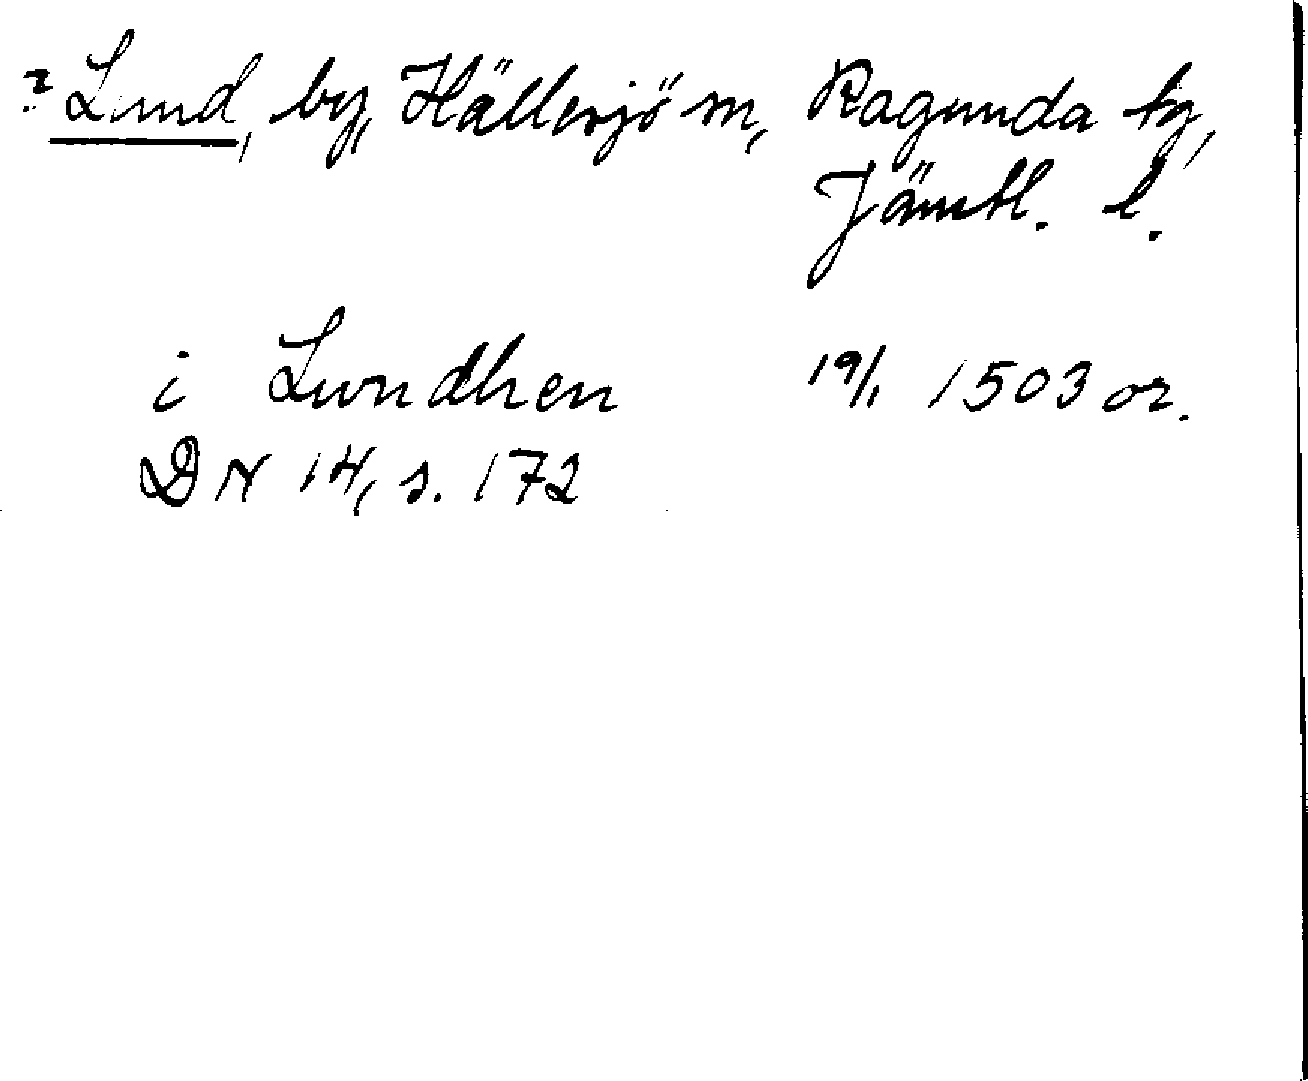 ? Lund, by, Hällesjö sn, Ragunda tg,
Jämtl. l.
i Lundhen 19/1 1503 or.
DN 14, s. 172